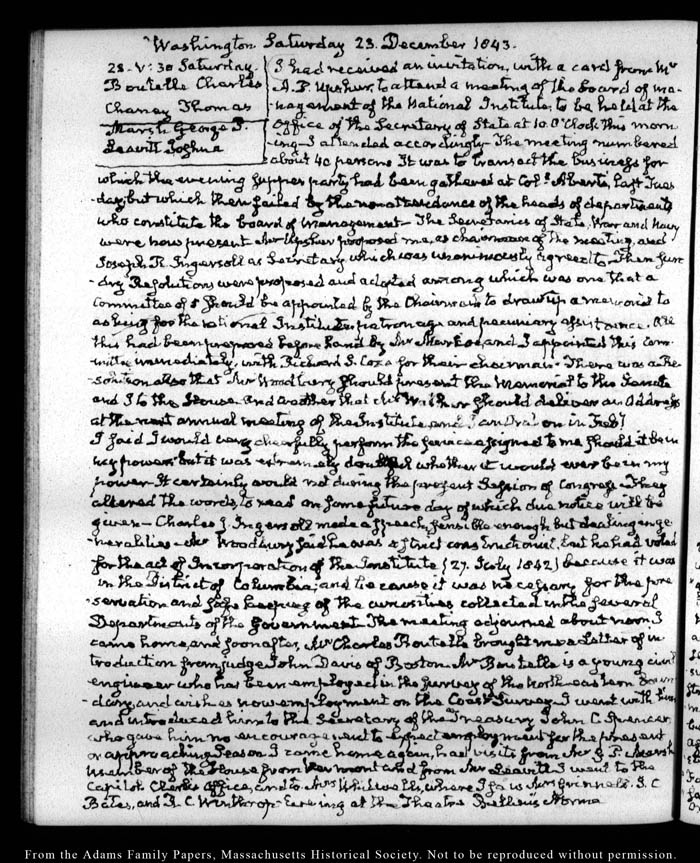 Washington Saturday 23. December 1843.
23. V:30 Saturday.
Boutelle Charles
Chaney Thomas
Marsh George P.
Leavitt Joshua
I had received an invitation, with a card from Mr
A. P. Upshur, to attend a meeting of the board of ma-
nagement of the National Institute, to be held at the
Office of the Secretary of State at 10. O'Clock this morn
ing. I attended accordingly. The meeting numbered
about 40 persons It was to transact the business for
which the evening supper party had been gathered at Coll. Abert's, last Tues
day, but which then failed by the nonattendance of the heads of departments
who constitute the board of management— The Secretaries of State, War and Navy
were now present. Mr Upshur proposed me, as chairman of the meeting, and
Joseph R. Ingersoll as Secretary which was unanimously agreed to. Then sun
dry Resolutions were proposed and adopted among which was one that a
Committee of 5 should be appointed by the Chairman to draw up a memorial to
asking for the National Institute patronage and pecuniary assistance. All
this had been prepared before hand by Mr Markoe, and I appointed this Com-
mittee immediately, with Richard S. Coxe for their chairman— There was a Re-
solution also that Mr Woodbury should present the Memorial to the Senate
and I to the House. And another that Mr should deliver an Address
at the next annual meeting of the Institute, and I an on in
I said I would very cheerfully perform the service assigned to me should it be in
my power, but it was extremely doubtful whether it would ever be in my
power. It certainly would not during the present Session of Congress— They
altered the words, to read on some future day of which due notice will be
given— Charles J. Ingersoll made a speech, sensible enough, but dealing in ge-
neralities— Mr Woodbury said he was a strict constructionist, but he had voted
for the act of Incorporation of the Institute (27. July 1842) because it was
in the District of Columbia; and because it was necessary for the pre
servation and safe keeping of the curiosities collected in the several
Departments of the Government. The meeting adjourned about noon. I
came home, and soon after, Mr Charles Boutelle brought me a Letter of in
troduction from judge John Davis of Boston. Mr Boutelle is a young civil
engineer who has been employed in the survey of the North-eastern boun
dary, and wishes now employment on the Coast Survey. I went with him
and introduced him to the Secretary of the Treasury John C. Spencer,
who gave him no encouragement to expect employment for the present
or approaching season. I came home again, had visits from Mr G. P. Marsh
member of the House from Vermont and from Mr Leavitt. I went to the
Capitol Clerks Office, and to Mrs Whitwell's, where I saw Mrs Grinnell. I. C
Bates, and R. C. Winthrop— Evening at the Theatre Bellini's Norma
From the Adams Family Papers, Massachusetts Historical Society. Not to be reproduced without permission.